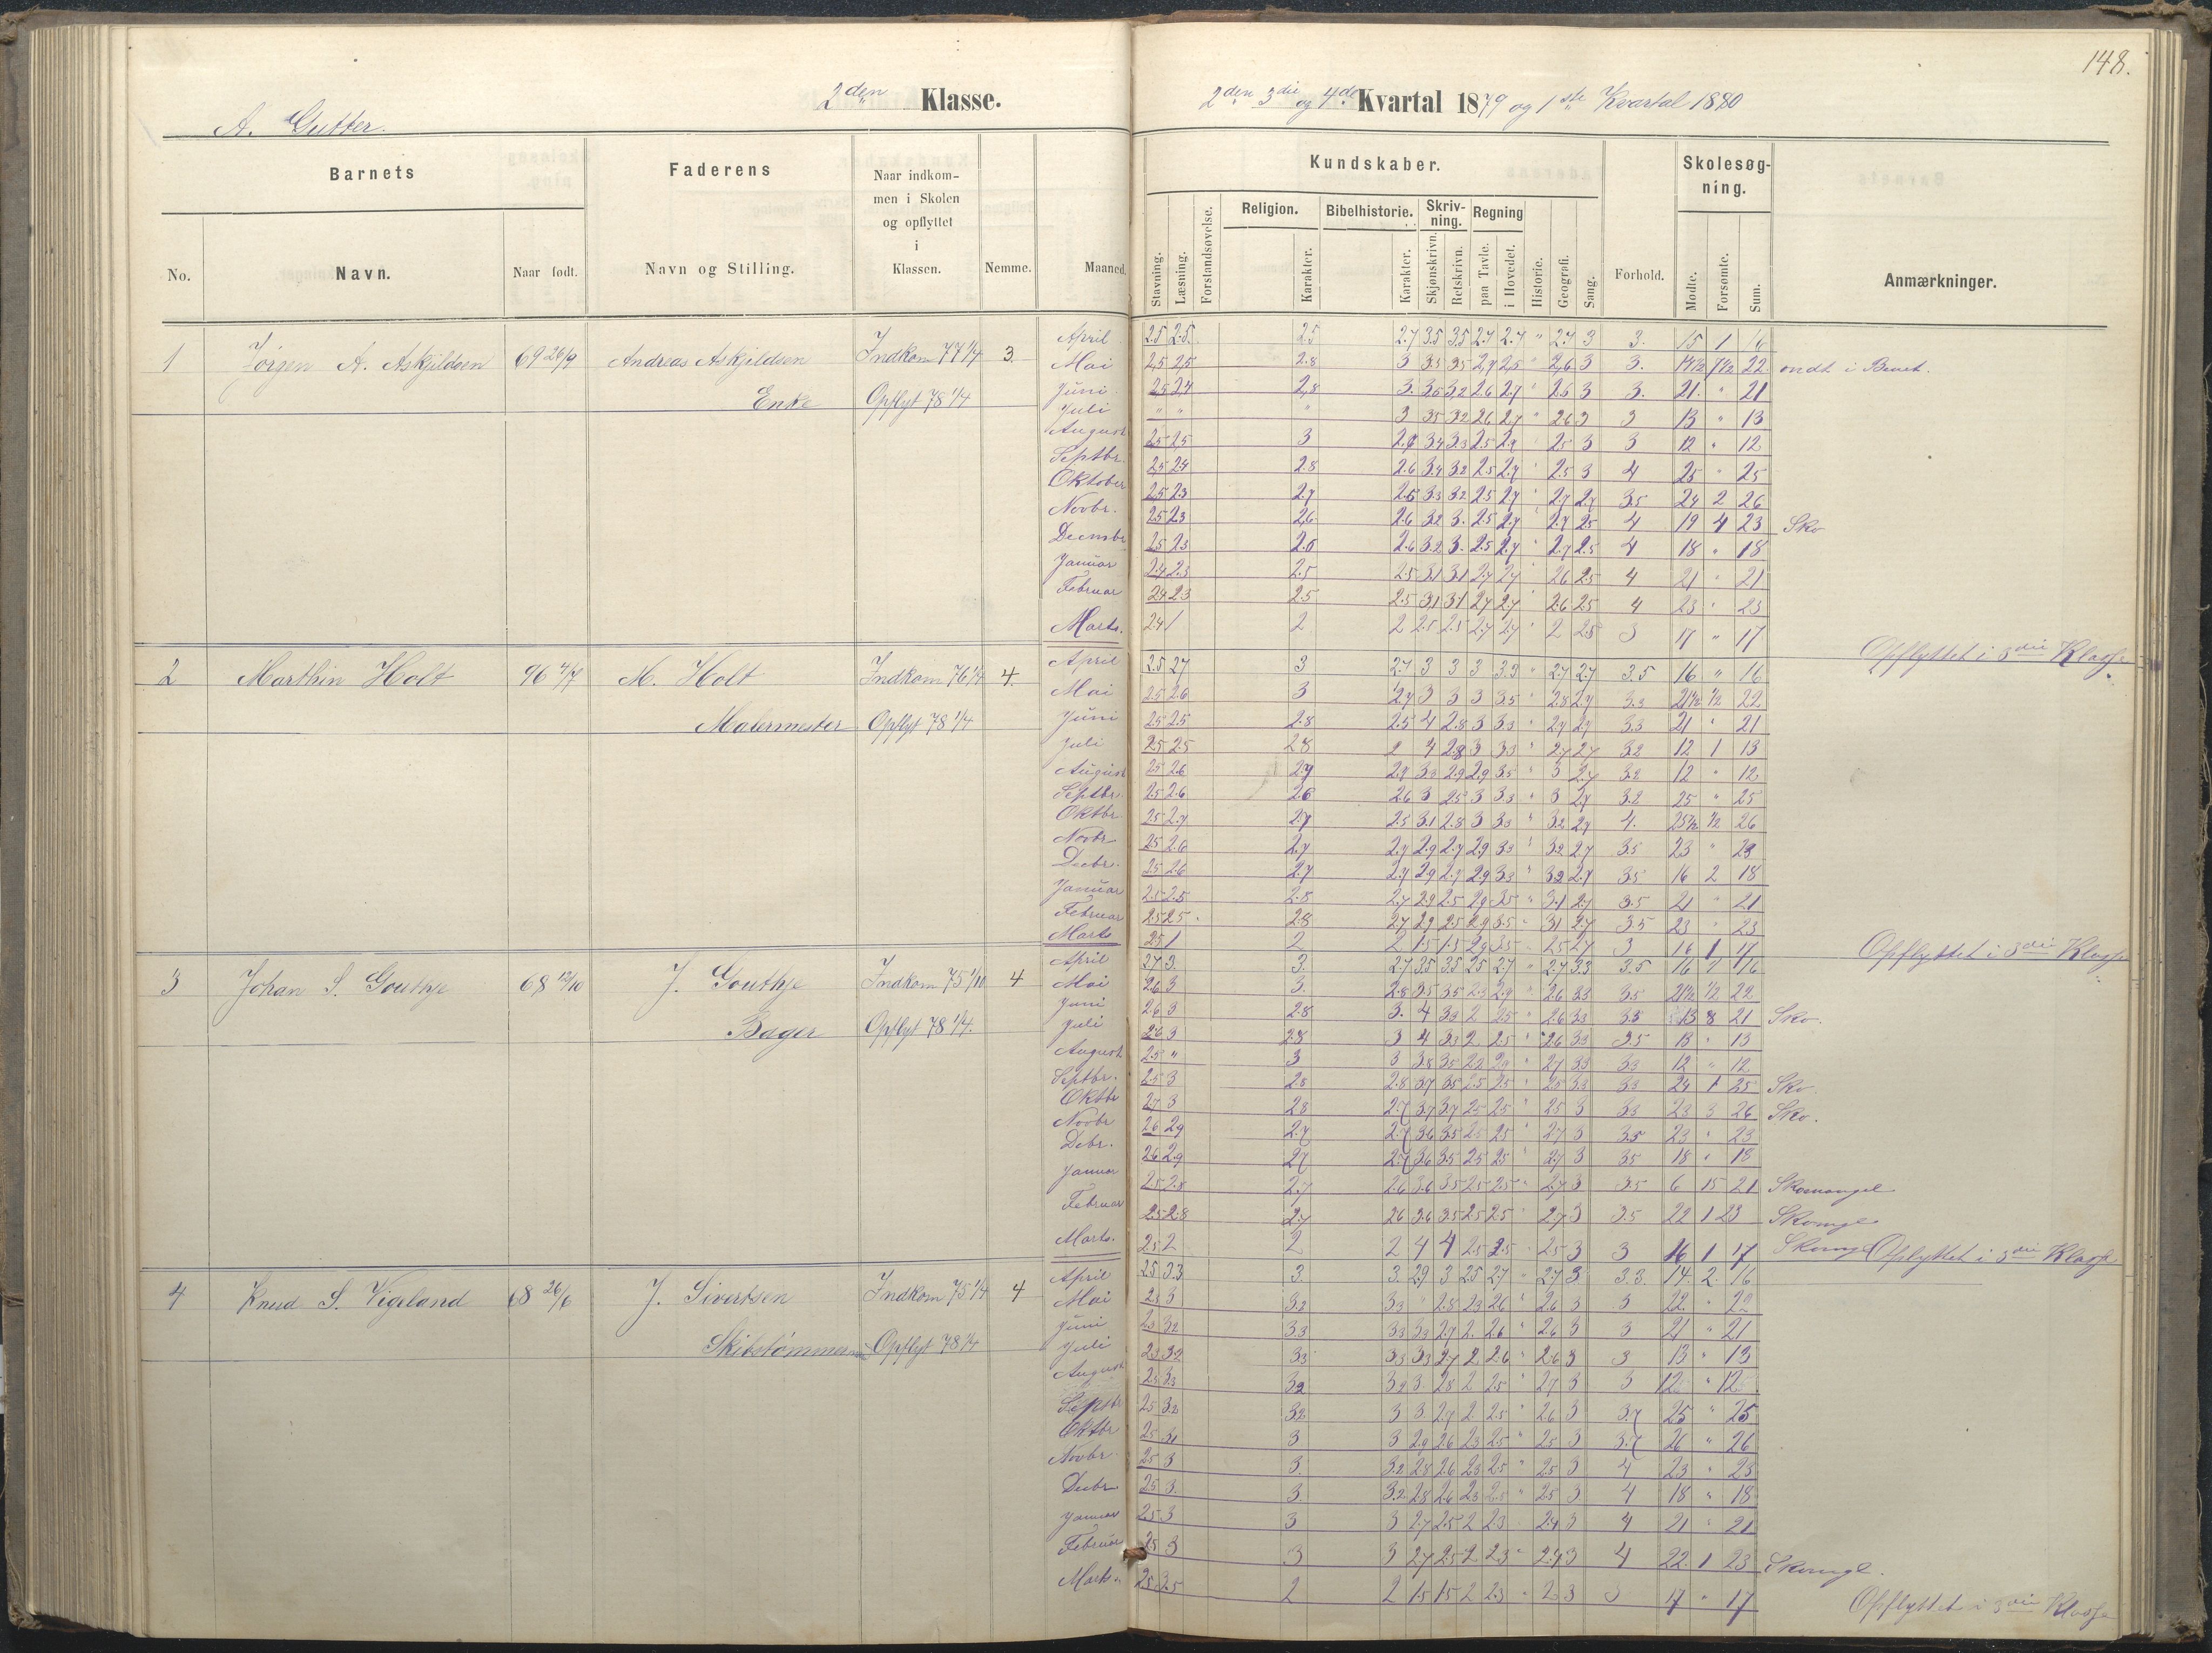 148.
2den Klasse.
2den 3die og 4de Kvartal 1879 og 1ste Kvartal 1880
A. Gutter.
Barnets
Faderens
Naar indkom-
men i Skolen
og opflyttet
i
Klassen.
Kundskaber.
Skolesøg-
ning.
Religion. Bibelhistorie. Skriv-
ning. Regning
No. Navn. Naar født. Navn og Stilling. Nemme. Maaned.
Stavning. Læsning. Forstandsøvelse. Karakter. Karakter. Skjønskrivn. Retskrivn. paa Tavle. i Hovedet. Historie. Geografi. Sang. Forhold. Mødte. Forsømte. Sum. Anmærkninger.
1 Jørgen A. Askjeldsen 69 26/9 Andreas Askjeldsen Indkom 77 1/4 3.
Enke Opflyt 78 1/4
April 2.5 2.5 2.5 2.7 3.5 3.5 2.7 2.7 " 2.7 3 3. 15 1 16
Mai 2,5 2,5 2.8 3 3.5 3.5 2,7 2,5 " 2,6 3 3. 14½ 7½ 22 ondt i Benet.
Juni 2.5 2.4 2,8 3. 3.5 3.2 2.6 2.7 " 2.6 3 3. 21. " 21
Juli " " " 3 3.5 3.2 2.6 2.7 " 2.6 3 3 13 " 13
August 2.5 2.5 3 3.4 3.3 2.5 2.9 " 2.5 3 3 12 " 12
Septbr. 2.5 2.4 2.8 2.6 3.4 3.2 2.5 2.7 " 2.5 3 4 25 " 25
Oktober 2.5 2.3 2.7 2.6 3.3 3.2 2.5 2.7 " 2.7 2.7 3.5 24 2 26
Novbr. 2.5 2.3 2.6 2.6 3.2 3. 2.5 2.7 " 2.7 2.5 4 19 4 23 Sko
Decmbr 2.5 2.3 2.6 3.2 3. 2.5 2.7 " 2.7 2.5 4 18 " 18
Januar 2.4 2.3 2.5 2.5 3.1 3.1 2.7 2.7 " 2.6 2.5 4 21 " 21
Februar 2.4 2.3 2.5 2.5 3.1 3.1 2.7 2.7 " 2.6 2.5 4 23 " 23
Marts. 2.4 1 2 2 2.5 2.5 2.7 2.7 " 2 2.5 3 17 " 17 Opflyttet i 3die Klasse
2 Marthin Holt M. Holt Indkom 76 1/4 4.
Malermester Opflyt 78 1/4
April 2.5 2.7 3 2.7 3 3 3 3.3 " 2.7 2.7 3.5 16 " 16
Mai 2.5 2.6 3 2.7 3 3 3 3.5 " 2.8 2.7 3.3 21½ ½ 22
Juni 2.5 2.5 2.8 2.5 4 2.8 3 3.3 " 2.7 2.7 3.3 21 " 21
Juli 2.5 2.5 2.8 2 4 2.8 3 3.3 " 2.7 2.7 3.2 12 1 13
August 2.5 2.6 3.2 2.9 2.9 3.5 " 3 2.7 3.2 12 " 12
Septbr. 2.5 2.6 2.6 2.6 3 2.5 3 3.3 " 3 2.7 3.2 25 " 25
Oktbr. 2.5 2.7 2.7 2.5 3.1 2.8 3 3.3 " 3.2 2.7 4. 25½ ½ 26
Novbr 2.5 2.6 2.7 2.7 2.9 2.7 2.9 3.3 " 3.2 2.7 3.5 23 " 23
Decbr. 2.5 2.6 2.7 2.7 2.9 2.7 2.9 3.3 " 3.2 2.7 3.5 16 2 18
Januar 2.5 2.5 2.8 2.7 2.9 2.5 2.9 3.5 " 3.1 2.7 3.5 21 " 21
Februar 2.5 2.5 2.8 2.7 2.9 2.5 2.9 3.5 " 3.1 2.7 3.5 23 " 23
Marts 2.5 1 2 2 1.5 1.5 2.9 3.5 " 2.5 2.7 3 16 1 17 Opflyttet i 3die Klasse
3 Johan S. Gouthje 68 12/10 J. Gouthje Indkom 75 1/10 4
Bager Opflyt 78 1/4.
April 2.7 3. 3. 2.7 3.5 3.5 2.5 2.7 " 2.7 3.3 3.5 16 " 16
Mai 2.6 3 3. 2.8 3.5 3.5 2.3 2.9 " 2.6 3.3 3.5 21½ ½ 22
Juni 2.6 3 2.8 3. 4 3.3 2 2.5 " 2.6 3.3 3.5 13 8 21 Sko.
Juli 2.6 3 2.8 3 4 3.3 2 2.5 " 2.6 3.3 3.5 13 " 13
August 2.5 " 3 3 3.8 3.5 2.2 2.9 " 2.7 3.3 3.3 12 " 12
Septbr. 2.5 3 2.8 2.8 3.7 3.5 2.5 2.5 " 2.5 3.3 3.3 24 1 25 Sko
Oktbr 2.7 3 2.8 2.7 3.7 3.7 2.5 2.5 " 2.5 3 3.3 23 3 26 Sko.
Novbr 2.6 2.9 2.7 2.7 3.6 3.5 2.5 2.5 " 2.7 3 3.5 23 " 23
Debr. 2.6 2.9 2.7 2.7 3.6 3.5 2.5 2.5 " 2.7 3 3.5 18 " 18
Januar 2.5 2.8 2.7 2.6 3.6 3.5 2.5 2.5 " 2.7 3 3.5 6 15 21 Skomangel
Februar 2.5 2.8 2.7 2.6 3.6 3.5 2.5 2.5 " 2.7 3 3.5 22 1 23 Skomgl
Marts. 2.5 2 2 2 4 4 2.5 2.5 " 2.5 3 3 16 1 17 Skomgl Opflyttet i 3die Klasse
4 Knud S. Vigeland 68 26/6 J. Sivertsen Indkom 75 1/4 4
Opflyt 78 1/4
April 2.5 3.3 3. 3. 2.9 3 2.5 2.7 " 2.7 3 3.3. 14. 2. 16
Mai 2.3 3 3.2 3.3 " 2.8 2.3 2.6 " 2.6 3 3 22. " 22
Juni 2.3 3.2 3.3 3.3 3.3 2.7 2. 2.6 " 2.6 3 3 21 " 21
Juli 2.3 3.2 3.3 3.3 3.3 2.7 2 2.6 " 2.6 3 3 13 " 13
August 2.3 3.3 3.2 3.2 3 2.8 2 2.5 " 2.7 3 3 12 " 12
Septbr 2.5 3.2 3.2 3 3 2.7 2 2.5 " 2.6 3 3.7 25 " 25
Oktbr 2.5 3.1 3 3 2.9 2.6 2.3 2.5 " 2.5 3 3.7 26 " 26
Novbr 2.5 3 3. 3.2 2.8 2.6 2.3 2.5 " 2.5 3 4 23 " 23
Decbr 2.5 3. 3. 3.2 2.8 2.6 2.3 2.5 " 2.5 3 4 18 " 18
Januar 2.5 3 3 3 2.7 2.5 2 2.3 2.4 3 4 21 " 21
Februar 2.5 3 3 3 2.7 2.5 2 2.3 " 2.4 3 4 22. 1 23 Skomgl.
Marts. 2.5 2.5 2 2 1.5 1.5 2 2.3 " 2.3 3 3 17 " 17 Opflyttet i 3die Klasse